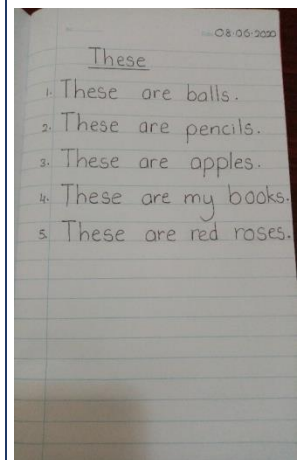 08.06.2020
These
1. These are balls.
2. These are pencils.
3. These are apples.
4. These are my books.
5. These are red roses.